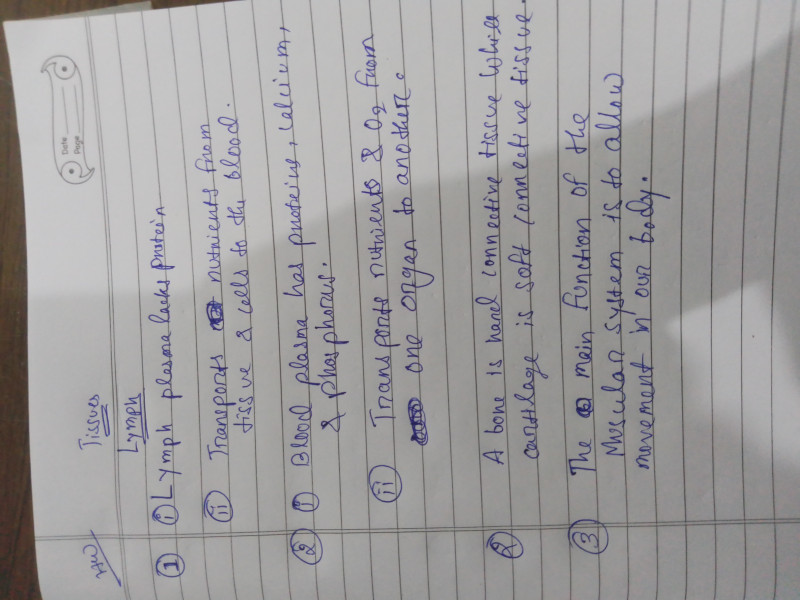 Date
Page
HW
Tissues
Lymph
① ⓘ Lymph plasma lacks protein
ⅱ Transports nutrients from
tissue & cells to the blood.
② ⓘ Blood plasma has proteins, calcium,
& phosphorus.
ⅱ Transports nutrients & O2 from
one organ to another.
② A bone is hard connective tissue while
cartilage is soft connective tissue.
③ The main function of the
Muscular system is to allow
movement in our body.